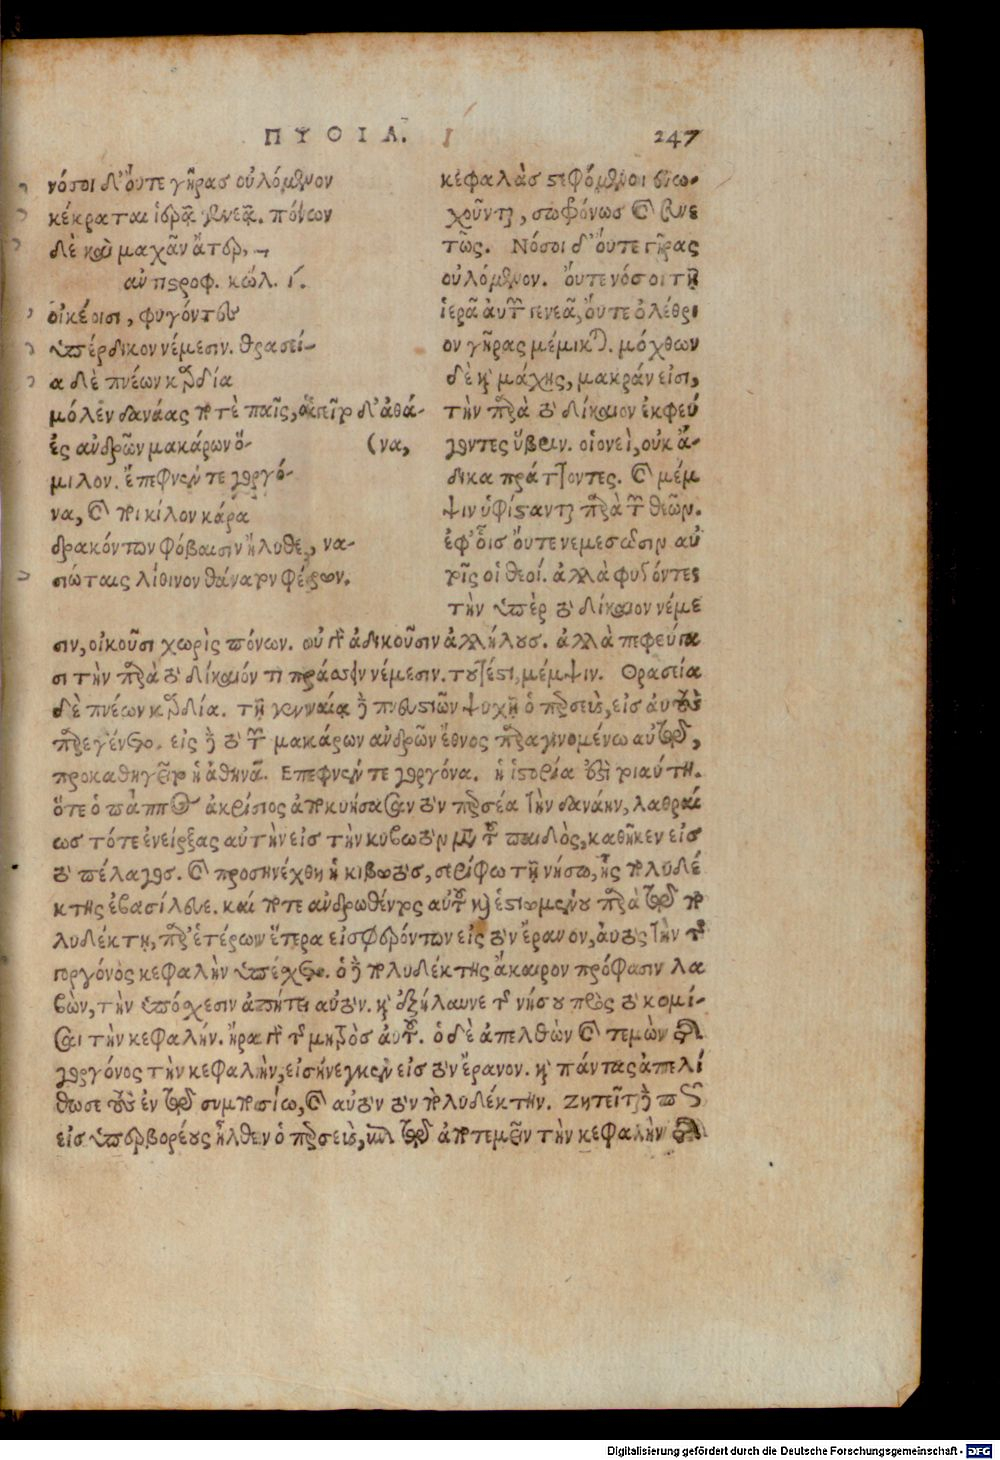 ΠΥΘΙΑ.
247
νόσοι δ' οὔτε γῆρας οὐλόμενον
κέκραται ἱερᾷ γενεᾷ. πόνων
δὲ καὶ μαχᾶν ἄτερ,
ἀντιστροφ. κώλ. ιʹ.
οἰκέοισι, φυγόντες
ὑπέρδικον νέμεσιν. θρασεί-
α δὲ πνέων καρδία
μόλεν δανάας ποτὲ παῖς, ἁγεῖτο δ' ἀθά-
ἐς ἀνδρῶν μακάρων ὅ- (να,
μιλον. ἔπεφνέν τε γοργό-
να, καὶ ποικίλον κάρα
δρακόντων φόβαισιν ἤλυθε, να-
σιώταις λίθινον θάνατον φέρων.
κεφαλὰς στεφόμενοι εὐω-
χοῦνται, σωφρόνως καὶ εὐνε
τῶς. Νόσοι δ' οὔτε γῆρας
οὐλόμενον. οὔτε νόσοι τῇ
ἱερᾷ αὐτῶν γενεᾷ, οὔτε ὀλέθρι
ον γῆρας μέμικται. μόχθων
δὲ καὶ μάχης, μακράν εἰσι,
τὴν παρὰ τὸ δίκαιον ἐκφεύ
γοντες ὕβριν. οἱονεὶ, οὐκ ἄ-
δικα πράττοντες. καὶ μέμ
ψιν ὑφίστανται παρὰ τῶν θεῶν.
ἐφ' οἷς οὔτε νεμεσῶσιν αὐ
τοῖς οἱ θεοί. ἀλλὰ φυγόντες
τὴν ὑπὲρ τὸ δίκαιον νέμε
σιν, οἰκοῦσι χωρὶς πόνων. οὐ γὰρ ἀδικοῦσιν ἀλλήλους. ἀλλὰ πεφεύγα
σι τὴν παρὰ τὸ δίκαιόν τι πράσσειν νέμεσιν. τουτέστι, μέμψιν. Θρασεία
δὲ πνέων καρδία. τῇ γενναίᾳ δὲ πνευστιῶν ψυχῇ ὁ περσεὺς, εἰς αὐτοὺς
παρεγένετο. εἰς δὲ τὸ τῶν μακάρων ἀνδρῶν ἔθνος παραγινομένω αὐτῷ,
προκαθηγεῖτο ἡ ἀθηνᾶ. Επεφνέν τε γοργόνα. ἡ ἱστορία ἐστὶ τοιαύτη.
ὅτε ὁ πάππος ἀκρίσιος ἀποκυήσασαν τὸν περσέα τὴν δανάην, λαθραί
ως τότε ἐνείρξας αὐτὴν εἰς τὴν κιβωτὸν μετὰ τοῦ παιδὸς, καθῆκεν εἰς
τὸ πέλαγος. καὶ προσηνέχθη ἡ κιβωτὸς, σερίφω τῇ νήσω, ἧς πολυδέ
κτης ἐβασίλευε. καί ποτε ἀνδρωθέντος αὐτοῦ καὶ ἑστιωμένου παρὰ τῷ πο
λυδέκτη, παρ' ἑτέρων ἕτερα εἰσφερόντων εἰς τὸν ἔρανον, αὐτὸς τὴν τῆς
γοργόνος κεφαλὴν ὑπέσχετο. ὁ δὲ πολυδέκτης ἄκαιρον πρόφασιν λα
βὼν, τὴν ὑπόσχεσιν ἀπήτει αὐτόν. καὶ ἐξήλαυνε τῆς νήσου πρὸς τὸ κομί-
σαι τὴν κεφαλήν. ἤρα γὰρ τῆς μητρὸς αὐτοῦ. ὁ δὲ ἀπελθὼν καὶ τεμὼν τῆς
γοργόνος τὴν κεφαλὴν, εἰσήνεγκεν εἰς τὸν ἔρανον. καὶ πάντας ἀπελί
θωσε τοὺς ἐν τῷ συμποσίω, καὶ αὐτὸν τὸν πολυδέκτην. ζητεῖται δὲ πῶς
εἰς ὑπερβορέους ἦλθεν ὁ περσεὺς, ἐπὶ τῷ ἀποτεμεῖν τὴν κεφαλὴν τῆς
Digitalisierung gefördert durch die Deutsche Forschungsgemeinschaft - DFG